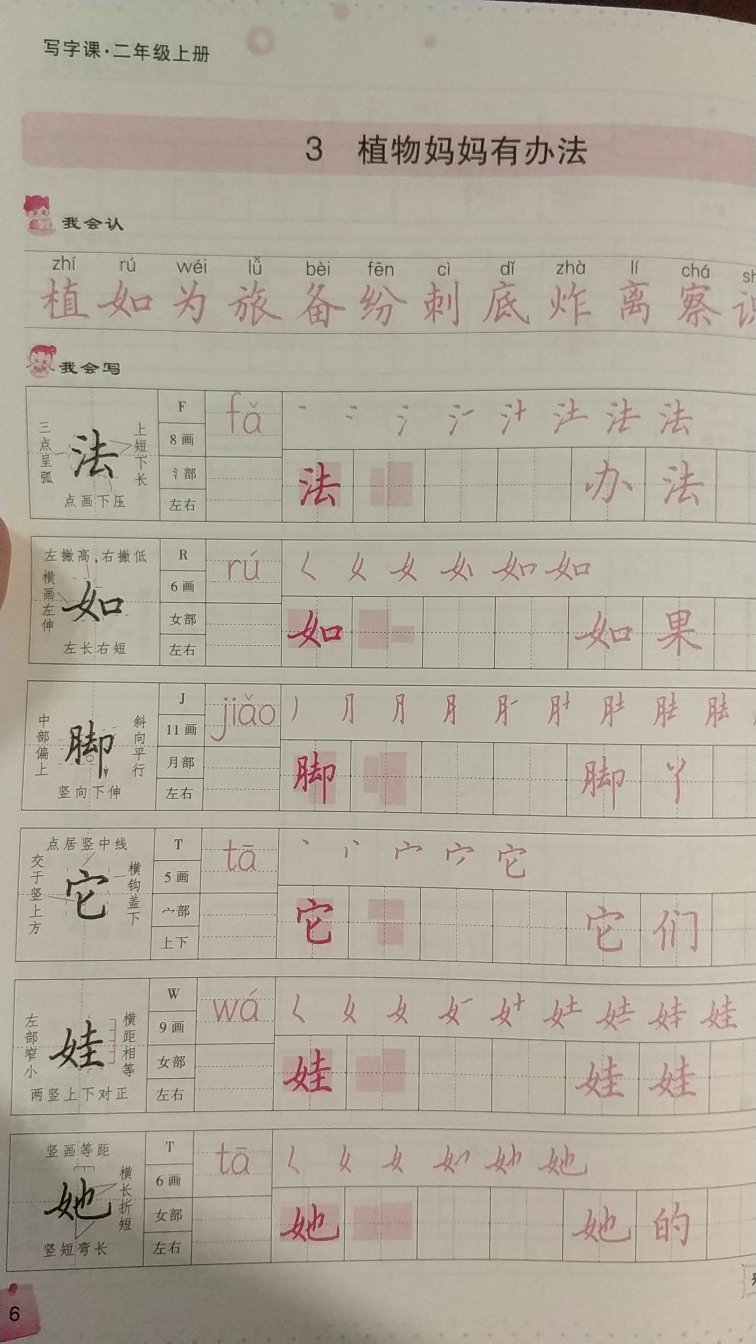 写字课·二年级上册
3 植物妈妈有办法
我会认
zhí rú wéi lǚ bèi fēn cì dǐ zhà lí chá
植 如 为 旅 备 纷 刺 底 炸 离 察 识
我会写
三点呈弧
法
上短下长
点画下压
F
8画
氵部
左右
fǎ
法
法
办 法
左撇高，右撇低
横画左伸
如
左长右短
R
6画
女部
左右
rú
如
如
如 果
中部偏上
脚
斜向平行
竖向下伸
J
11画
月部
左右
jiǎo
脚
脚 丫
点居竖中线
交于竖上方
它
横钩盖下
T
5画
宀部
上下
tā
它
它
它 们
左部窄小
娃
横距相等
两竖上下对正
W
9画
女部
左右
wá
娃
娃
娃 娃
竖画等距
她
横长折短
竖短弯长
T
6画
女部
左右
tā
她
她
她 的
6